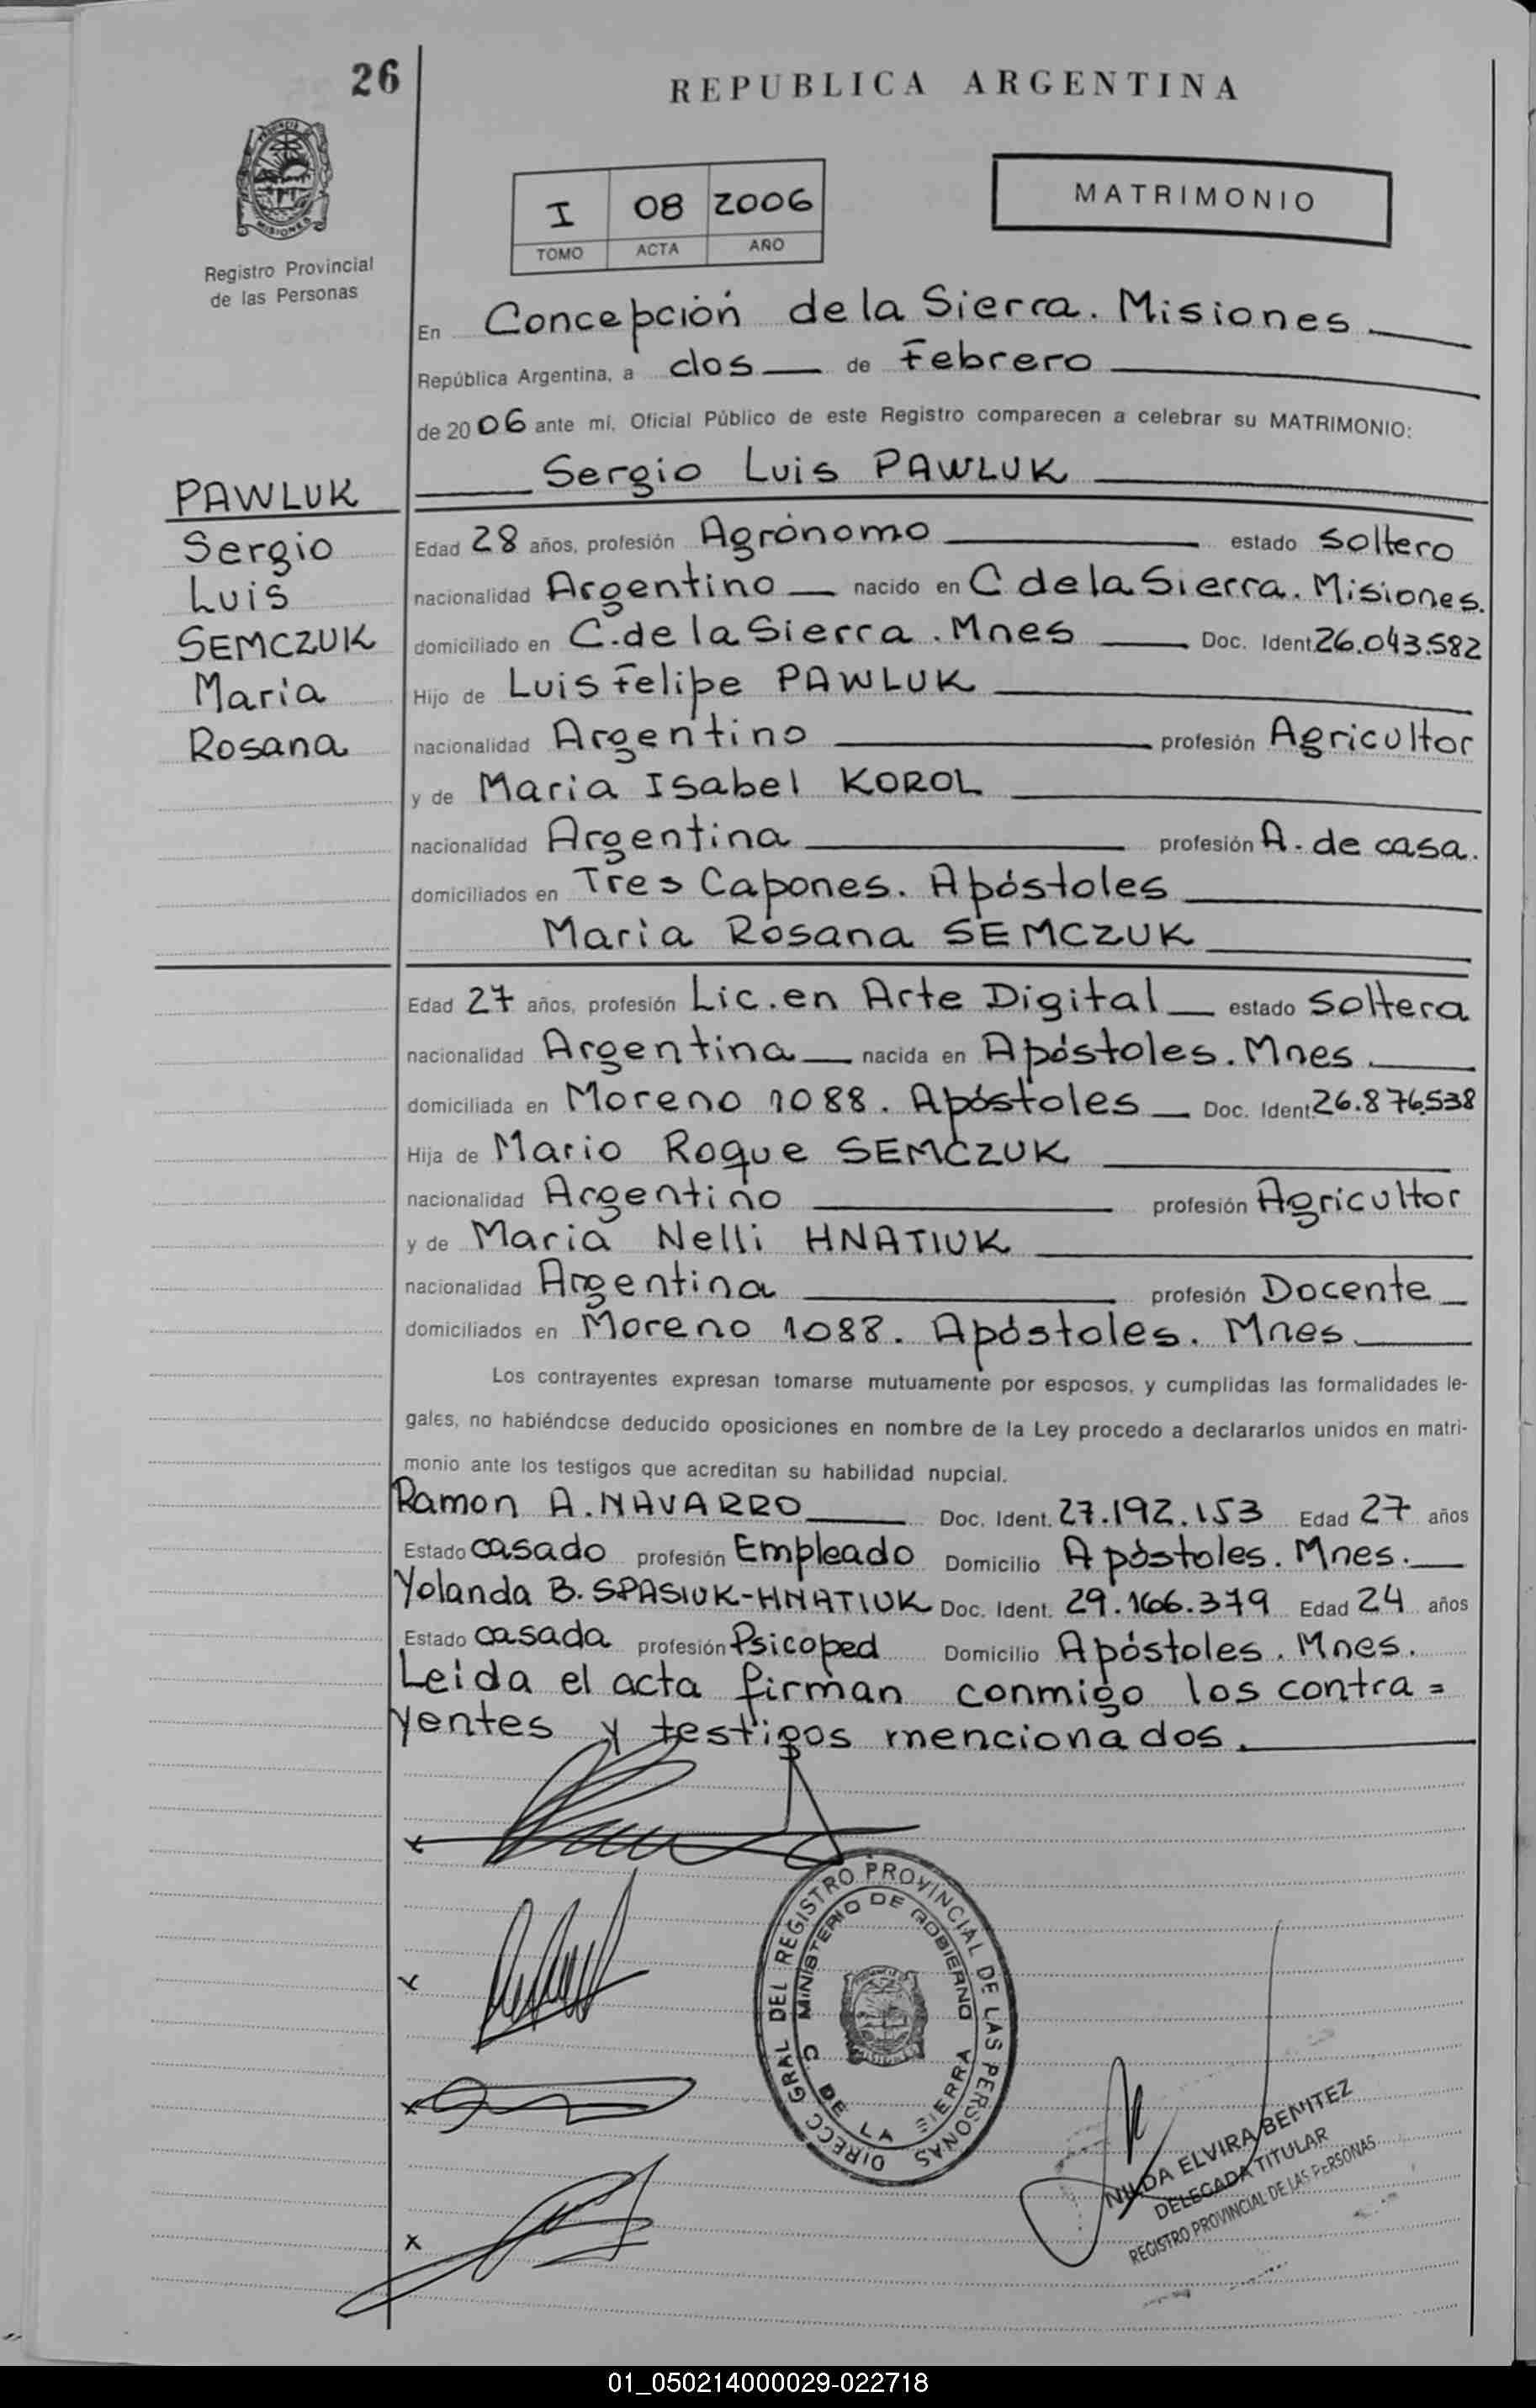 26
REPUBLICA ARGENTINA
I 08 2006
TOMO ACTA AÑO
MATRIMONIO
PROVINCIA DE
MISIONES
Registro Provincial
de las Personas
En Concepción de la Sierra. Misiones
República Argentina, a dos de Febrero
de 2006 ante mí, Oficial Público de este Registro comparecen a celebrar su MATRIMONIO:
Sergio Luis PAWLUK
PAWLUK
Sergio
Luis
SEMCZUK
Maria
Rosana
Edad 28 años, profesión Agrónomo estado Soltero
nacionalidad Argentino nacido en C de la Sierra. Misiones.
domiciliado en C. de la Sierra. Mnes Doc. Ident. 26.043.582
Hijo de Luis Felipe PAWLUK
nacionalidad Argentino profesión Agricultor
y de Maria Isabel KOROL
nacionalidad Argentina profesión A. de casa.
domiciliados en Tres Capones. Apóstoles
Maria Rosana SEMCZUK
Edad 27 años, profesión Lic. en Arte Digital estado Soltera
nacionalidad Argentina nacida en Apóstoles. Mnes.
domiciliada en Moreno 1088. Apóstoles Doc. Ident. 26.876.538
Hija de Mario Roque SEMCZUK
nacionalidad Argentino profesión Agricultor
y de Maria Nelli HNATIUK
nacionalidad Argentina profesión Docente
domiciliados en Moreno 1088. Apóstoles. Mnes.
Los contrayentes expresan tomarse mutuamente por esposos, y cumplidas las formalidades le-
gales, no habiéndose deducido oposiciones en nombre de la Ley procedo a declararlos unidos en matri-
monio ante los testigos que acreditan su habilidad nupcial.
Ramon A. NAVARRO Doc. Ident. 27.192.153 Edad 27 años
Estado casado profesión Empleado Domicilio Apóstoles. Mnes.
Yolanda B. SPASIUK-HNATIUK Doc. Ident. 29.166.379 Edad 24 años
Estado casada profesión Psicoped Domicilio Apóstoles. Mnes.
Leida el acta firman conmigo los contra=
yentes y testigos mencionados.
x
x
x
x
DIRECC GRAL DEL REGISTRO PROVINCIAL DE LAS PERSONAS
MINISTERIO DE GOBIERNO
C. DE LA SIERRA
NILDA ELVIRA BENITEZ
DELEGADA TITULAR
REGISTRO PROVINCIAL DE LAS PERSONAS
01_050214000029-022718